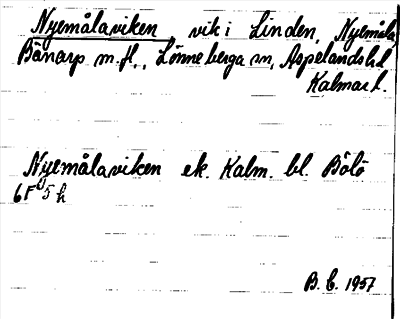 Nyemålaviken vik i Linden, Nyemåla,
Bänarp m.fl., Lönneberga sn, Aspelands hd
Kalmar l.
Nyemålaviken ek. Kalm. bl. Bölö
6F 5 h
B. C. 1957